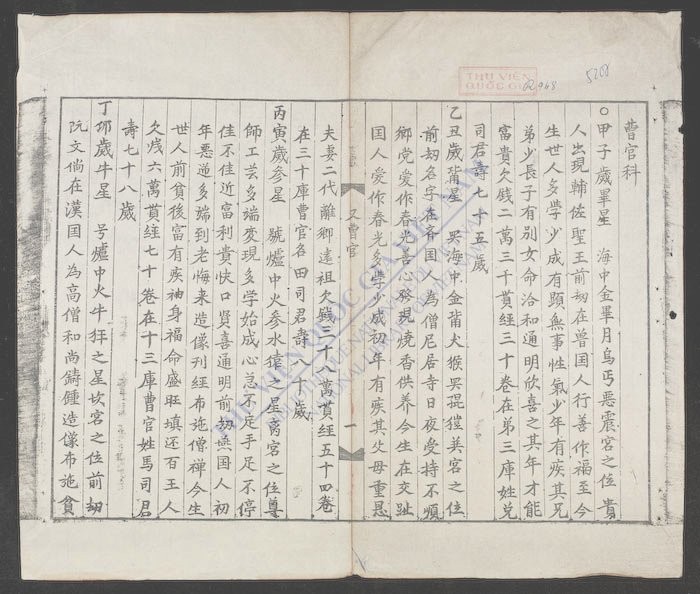 曹官科
○甲子歲畢星 海中金畢月烏丐惡震宮之位 貴
人出現輔佐聖王前劫在曾国人行善作福至今
生世人多學少成有顕無事性氣少年有疾其兄
弟少長子有別女命洽和通明欣喜之其年才能
富貴欠錢二萬三千貫經三十卷在第三庫姓兌
司君壽七十五歲
乙丑歲觜星 哭海中金觜火猴哭 宮之位
前劫名字在齐国人為僧尼居寺日夜受持不順
鄉党愛作春光喜心發現燒香供养今生在交趾
国人愛作春光多學少成初年有疾其父母重恳
又曹官
一
夫妻二代離鄉遠祖欠錢三十八萬貫經五十四卷
在三十庫曹官名田司君壽 十歲
丙寅歲参星 號爐中火参水猿之星离宮之位尊
師工芸多端变現多学始成心忌不足手足不停
佳不佳近富利貴快口賢喜通明前劫燕国人初
年悪逆多端到老悔来造像刊經布施僧禅今生
世人前貧後富有疾袖身福命盛旺填还百王人
欠戋六萬貫經七十卷在十三庫曹官姓馬司君
壽七十八歲
丁卯歲牛星 号爐中火牛 之星坎宮之位前劫
阮文倘在漢国人為高僧和尚鋳鍾造像布施貧
THƯ VIỆN
QUỐC GIA
THƯ VIỆN QUỐC GIA VIỆT NAM
5208